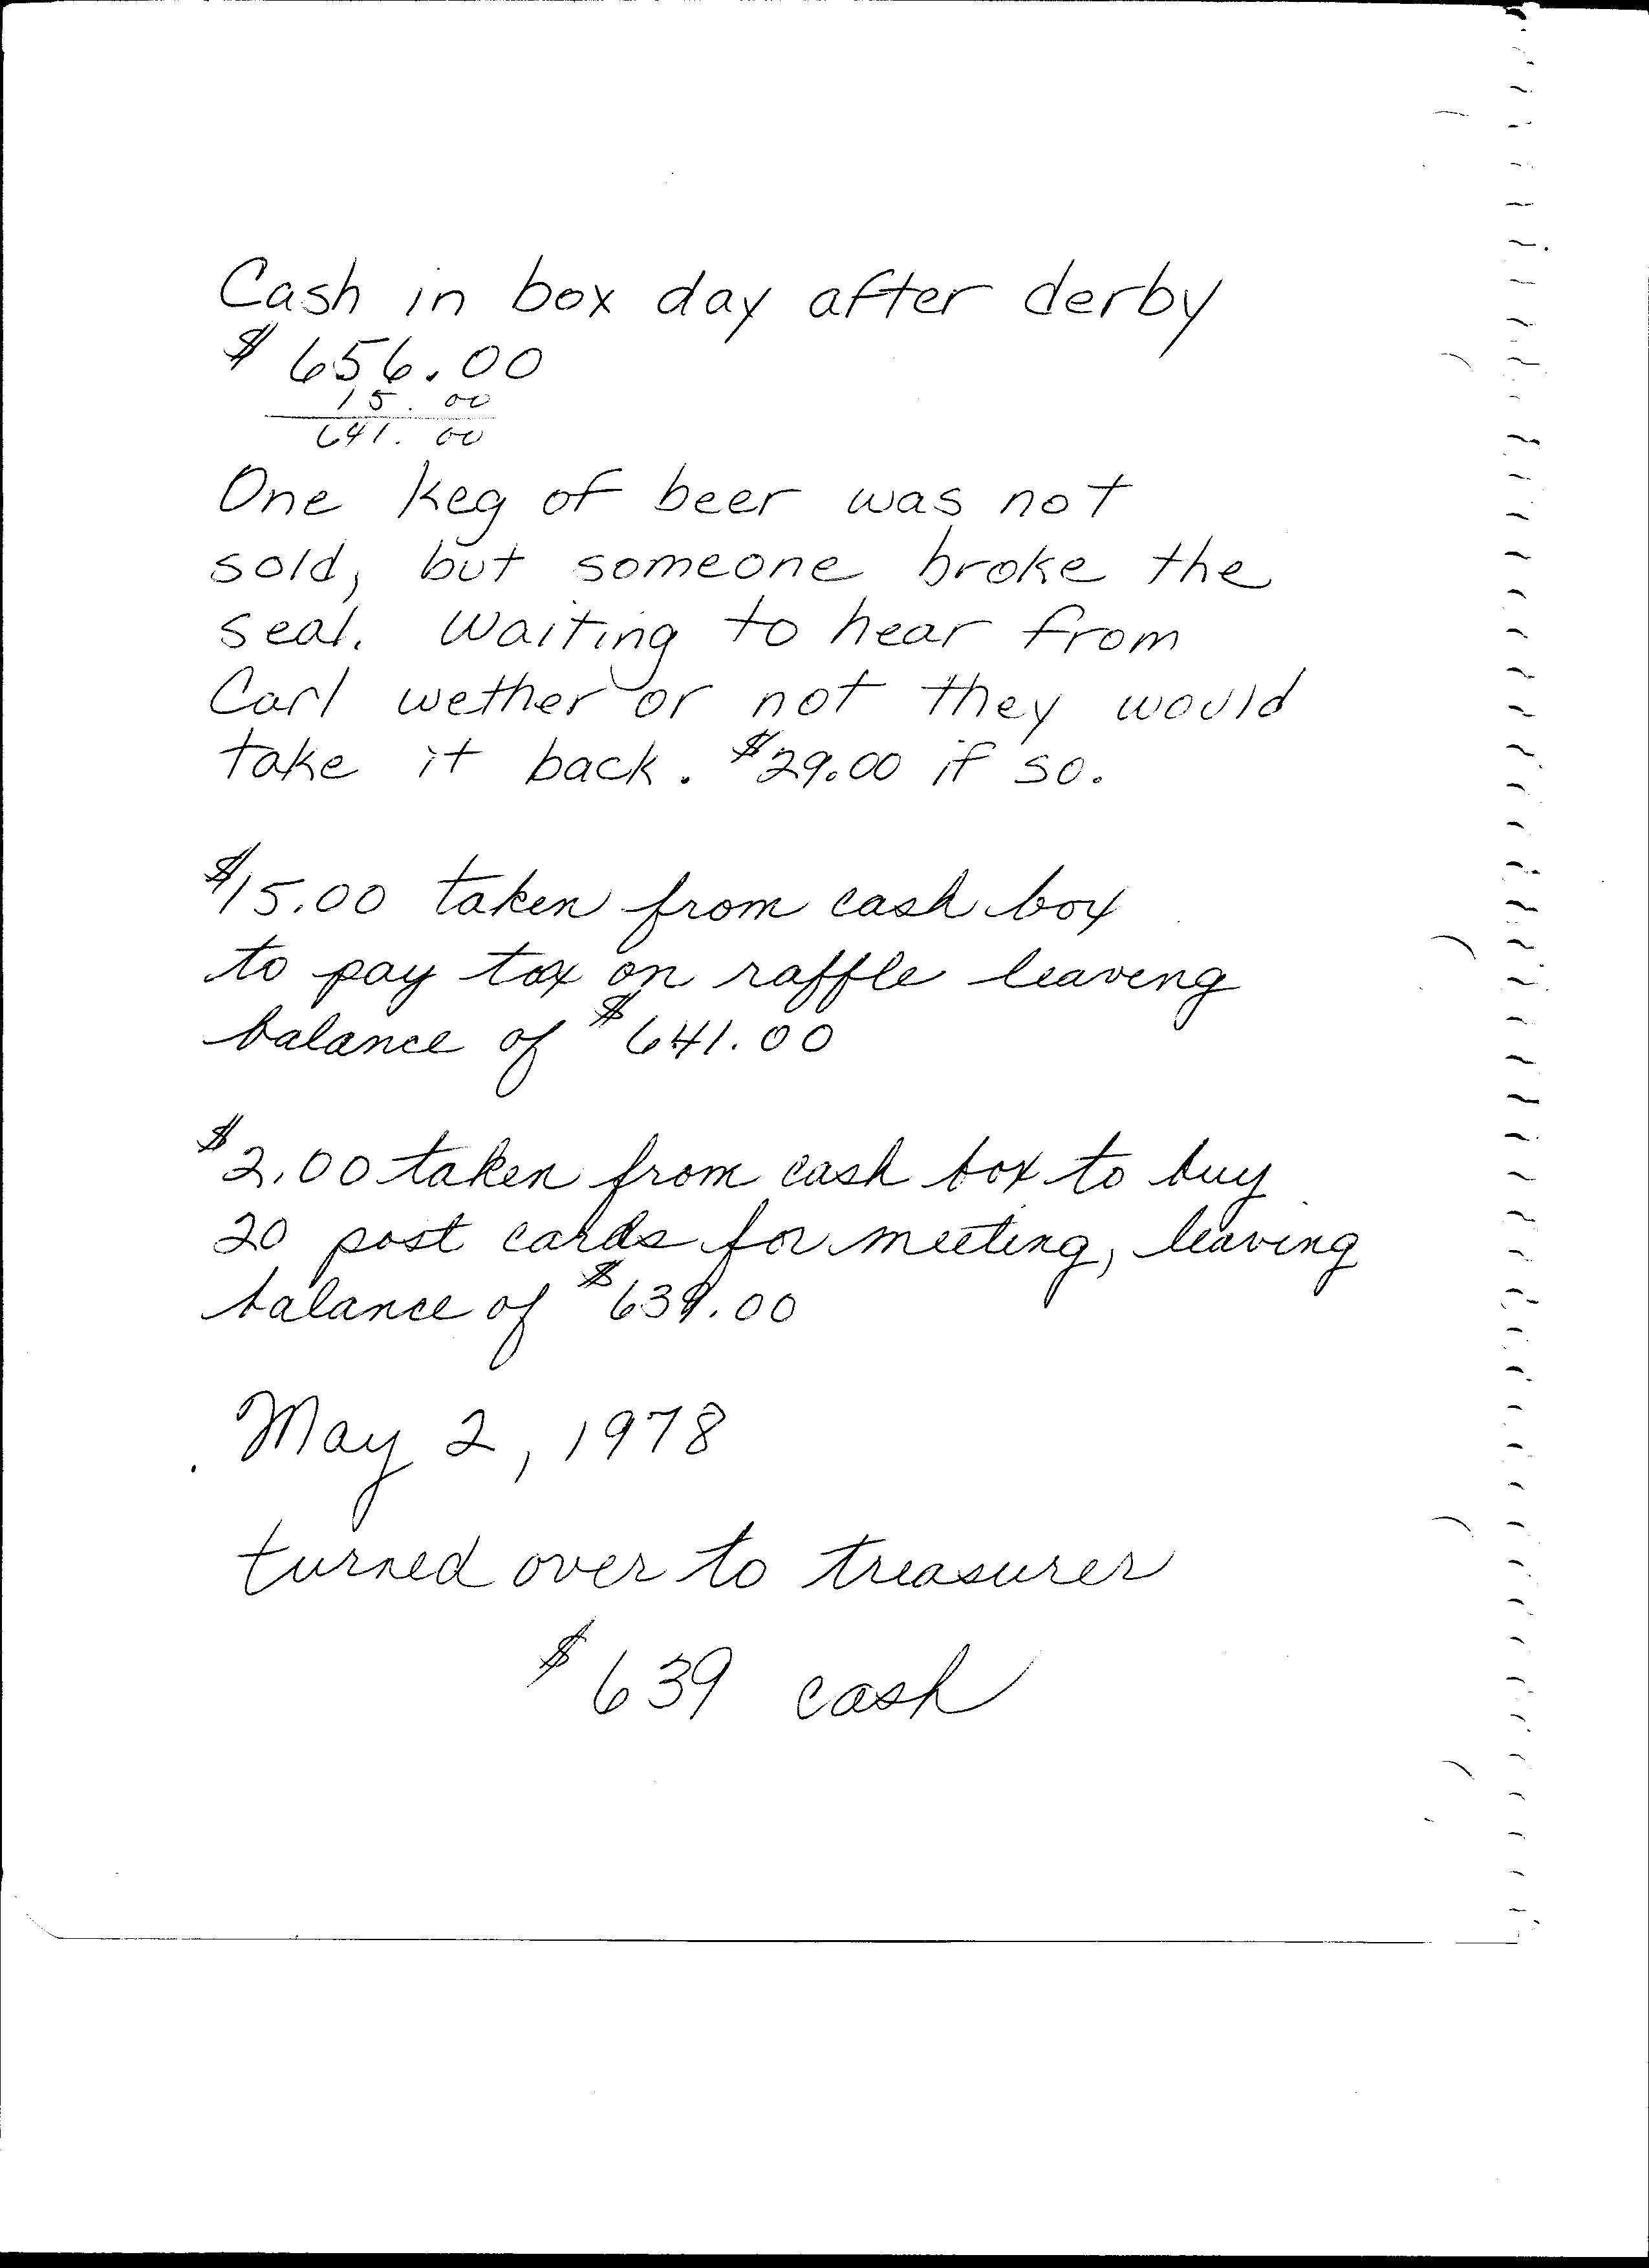 Cash in box day after derby
$656.00
15.00
641.00
One keg of beer was not
sold, but someone broke the
seal. Waiting to hear from
Carl wether or not they would
take it back. $29.00 if so.
$15.00 taken from cash box
to pay tax on raffle leaving
balance of $641.00
$2.00 taken from cash box to buy
20 post cards for meeting, leaving
balance of $639.00
May 2, 1978
turned over to treasurer
$639 cash